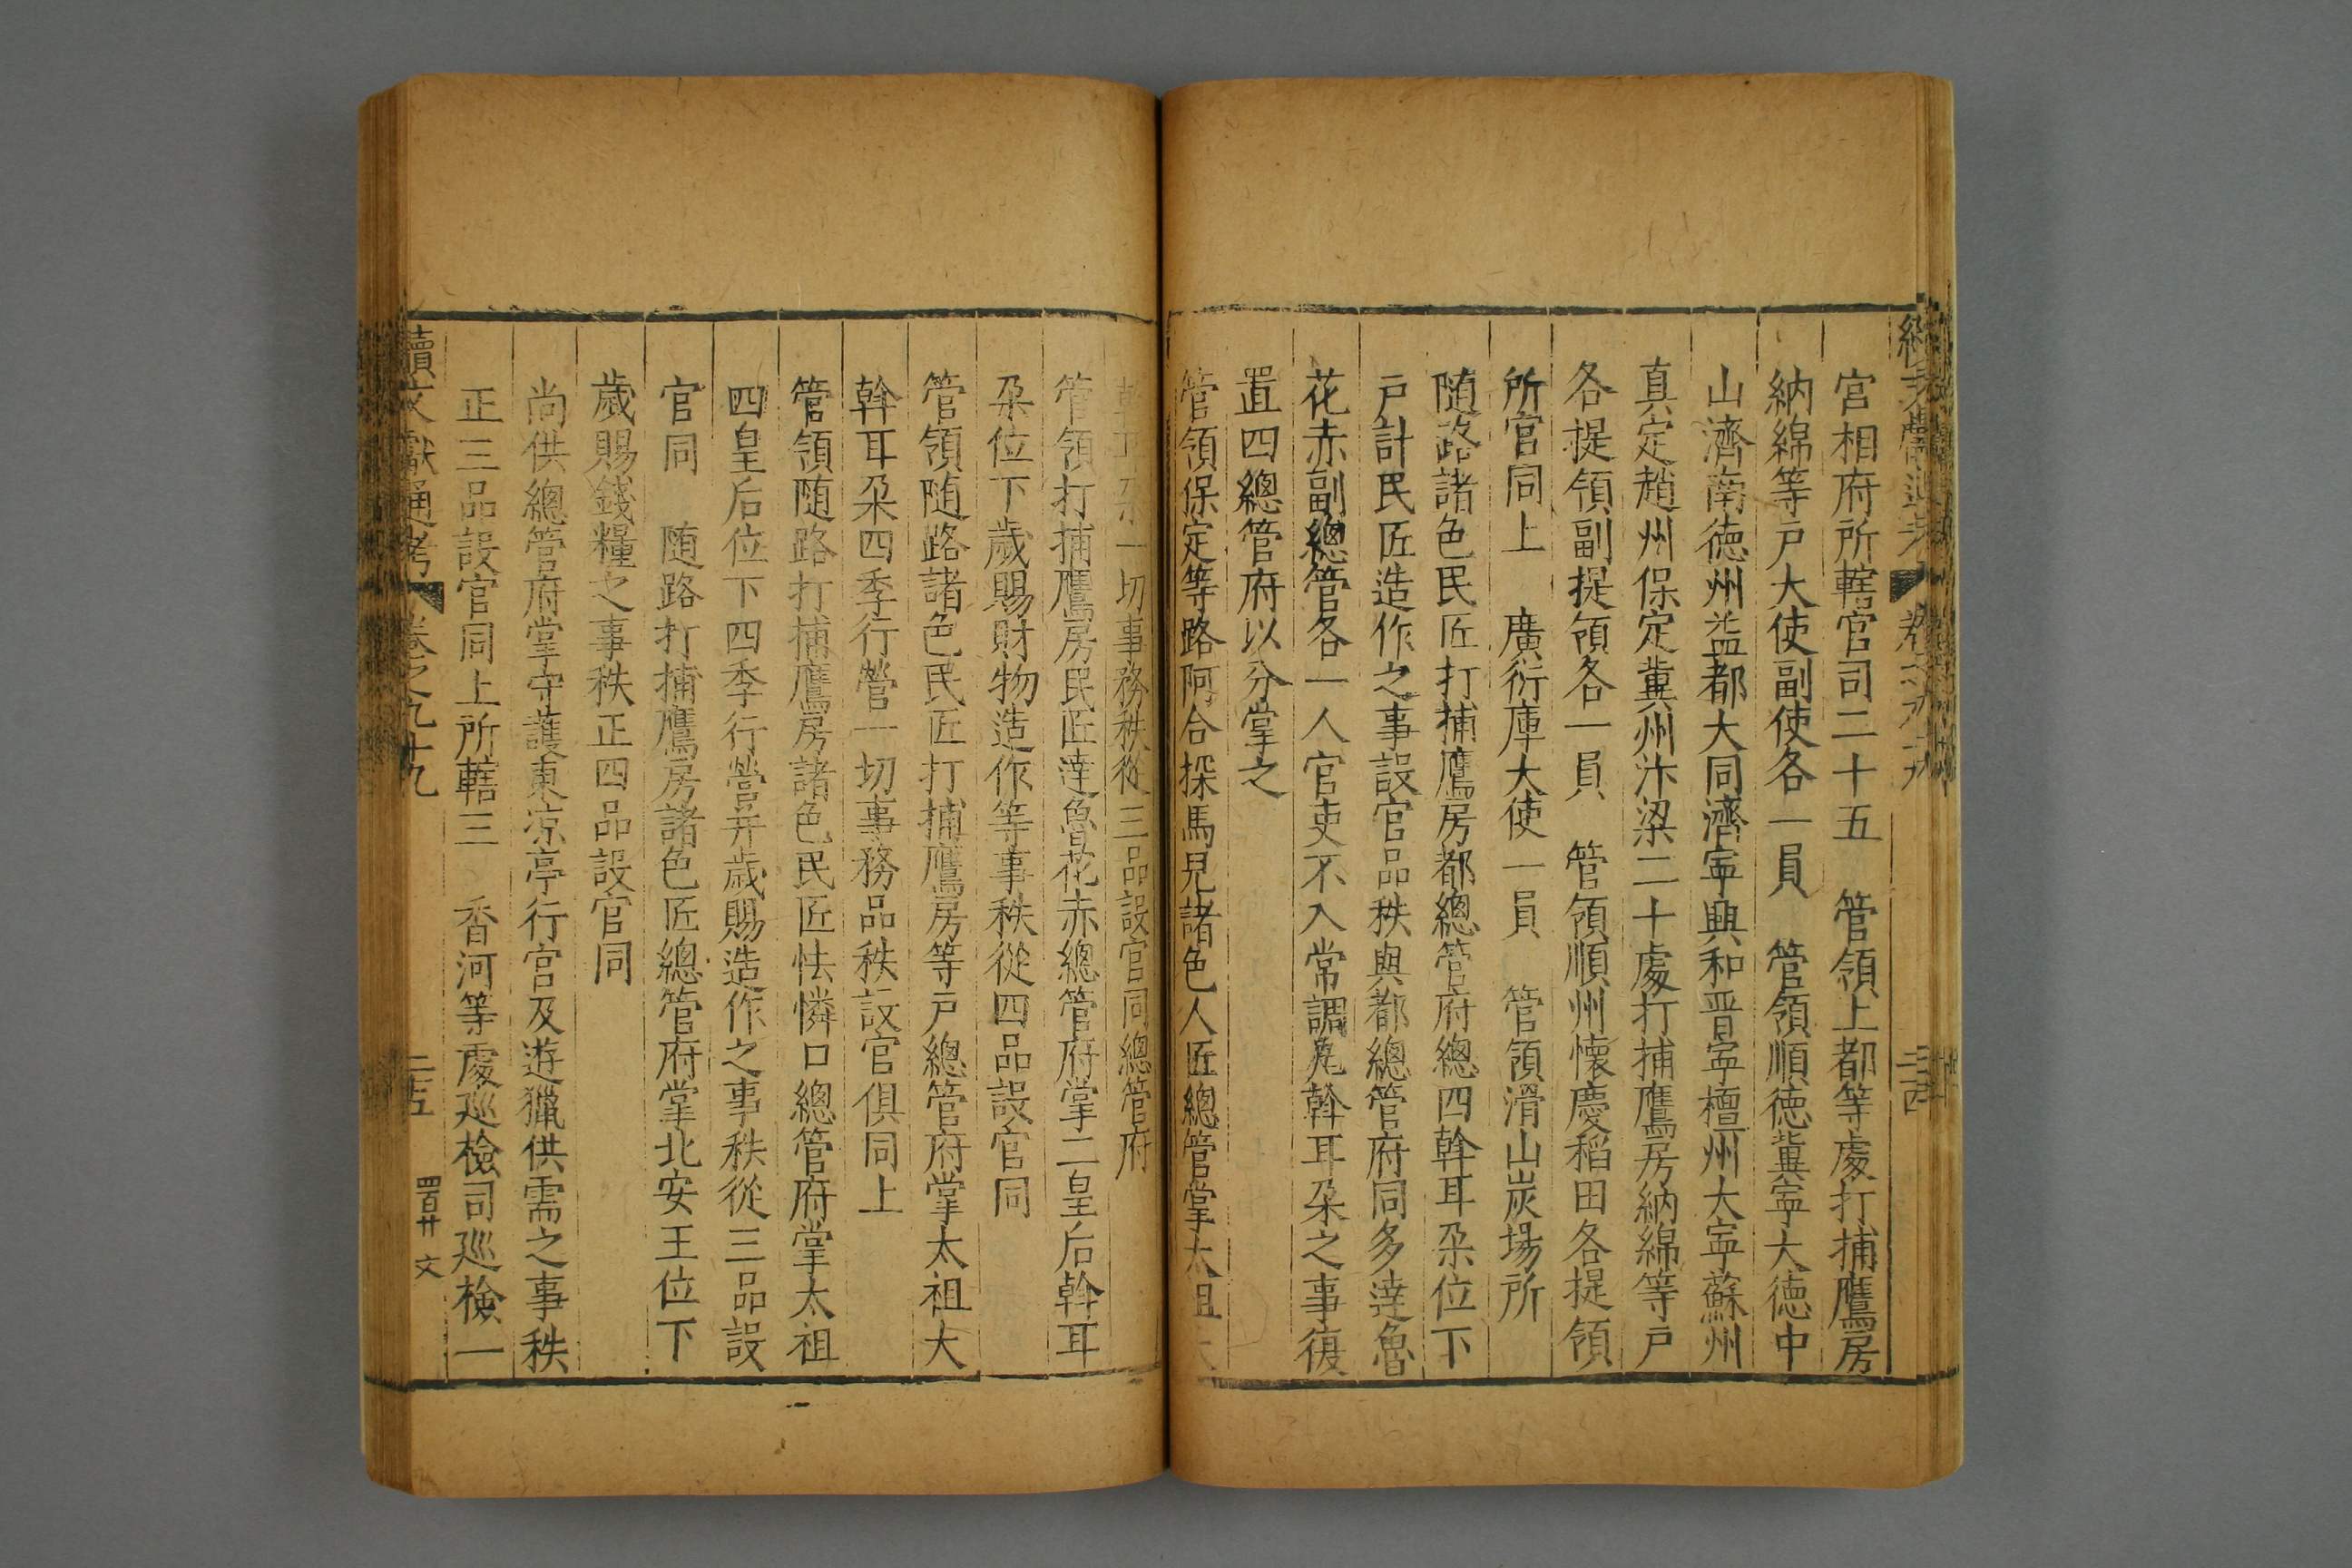 宮相府所轄官司二十五　管領上都等處打捕鷹房
納綿等戸大使副使各一員　管領順德冀寧大德中
山濟南德州益都大同濟寧興和晋寧檀州大寧蘇州
真定趙州保定冀州汴梁二十處打捕鷹房納綿等戸
各提領副提領各一員　管領順州懷慶稻田各提領
所官同上　廣衍庫大使一員　管領滑山炭場所
随路諸色民匠打捕鷹房都總管府總四斡耳朶位下
戸計民匠造作之事設官品秩與都總管府同多達魯
花赤副總管各一人官吏不入常調凡斡耳朶之事復
置四總管府以分掌之
管領保定等路阿合探馬兒諸色人匠總管掌太祖大
斡耳朶一切事務秩從三品設官同總管府
管領打捕鷹房民匠達魯花赤總管府掌二皇后斡耳
朶位下歲賜財物造作等事秩從四品設官同
管領随路諸色民匠打捕鷹房等戸總管府掌太祖大
斡耳朶四季行營一切事務品秩設官俱同上
管領随路打捕鷹房諸色民匠怯憐口總管府掌太祖
四皇后位下四季行營并歲賜造作之事秩從三品設
官同　随路打捕鷹房諸色匠總管府掌北安王位下
歲賜錢糧之事秩正四品設官同
尚供總管府掌守護東凉亭行宮及遊獵供需之事秩
正三品設官同上所轄三　香河等處巡檢司巡檢一
續文獻通考　卷之九十九　二十五　四百廿　文